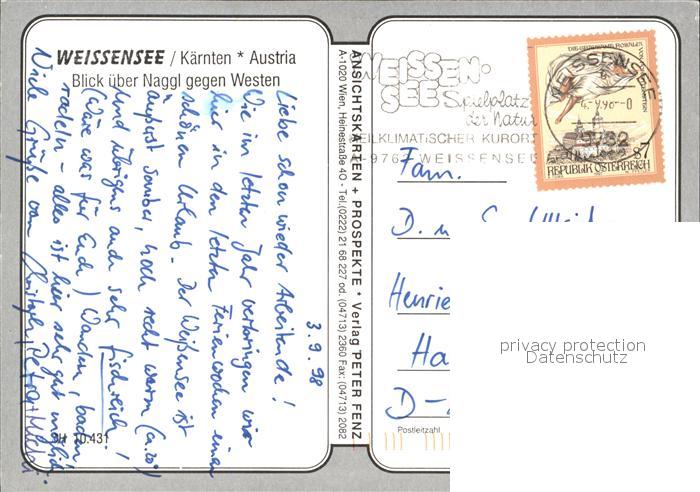 WEISSENSEE / Kärnten * Austria
Blick über Naggl gegen Westen
3.9.98
Liebe schon wieder Arbeitende!
Wie im letzten Jahr verbringen wir
hier in den letzten Ferienwochen einen
schönen Urlaub. Der Weißensee ist
sauber, noch recht warm (ca. 20°)
und übrigens auch sehr fischreich!
(Wäre was für Euch) Wandern, baden,
radeln - alles ist hier sehr gut möglich.
Viele Grüße von Christoph, Petra +
10.431
ANSICHTSKARTEN + PROSPEKTE * Verlag PETER FENZ
A-1020 Wien, Heinestraße 40 - Tel.(0222) 21 68 227 od. (04713) 2360 Fax: (04713) 2082
WEISSEN-
SEE Spielplatz
der Natur
HEILKLIMATISCHER KURORT
A-9762 WEISSENSEE
WEISSENSEE
REPUBLIK ÖSTERREICH
Fam.
D. u.
Henrie
Ha
D-
Postleitzahl
privacy protection
Datenschutz